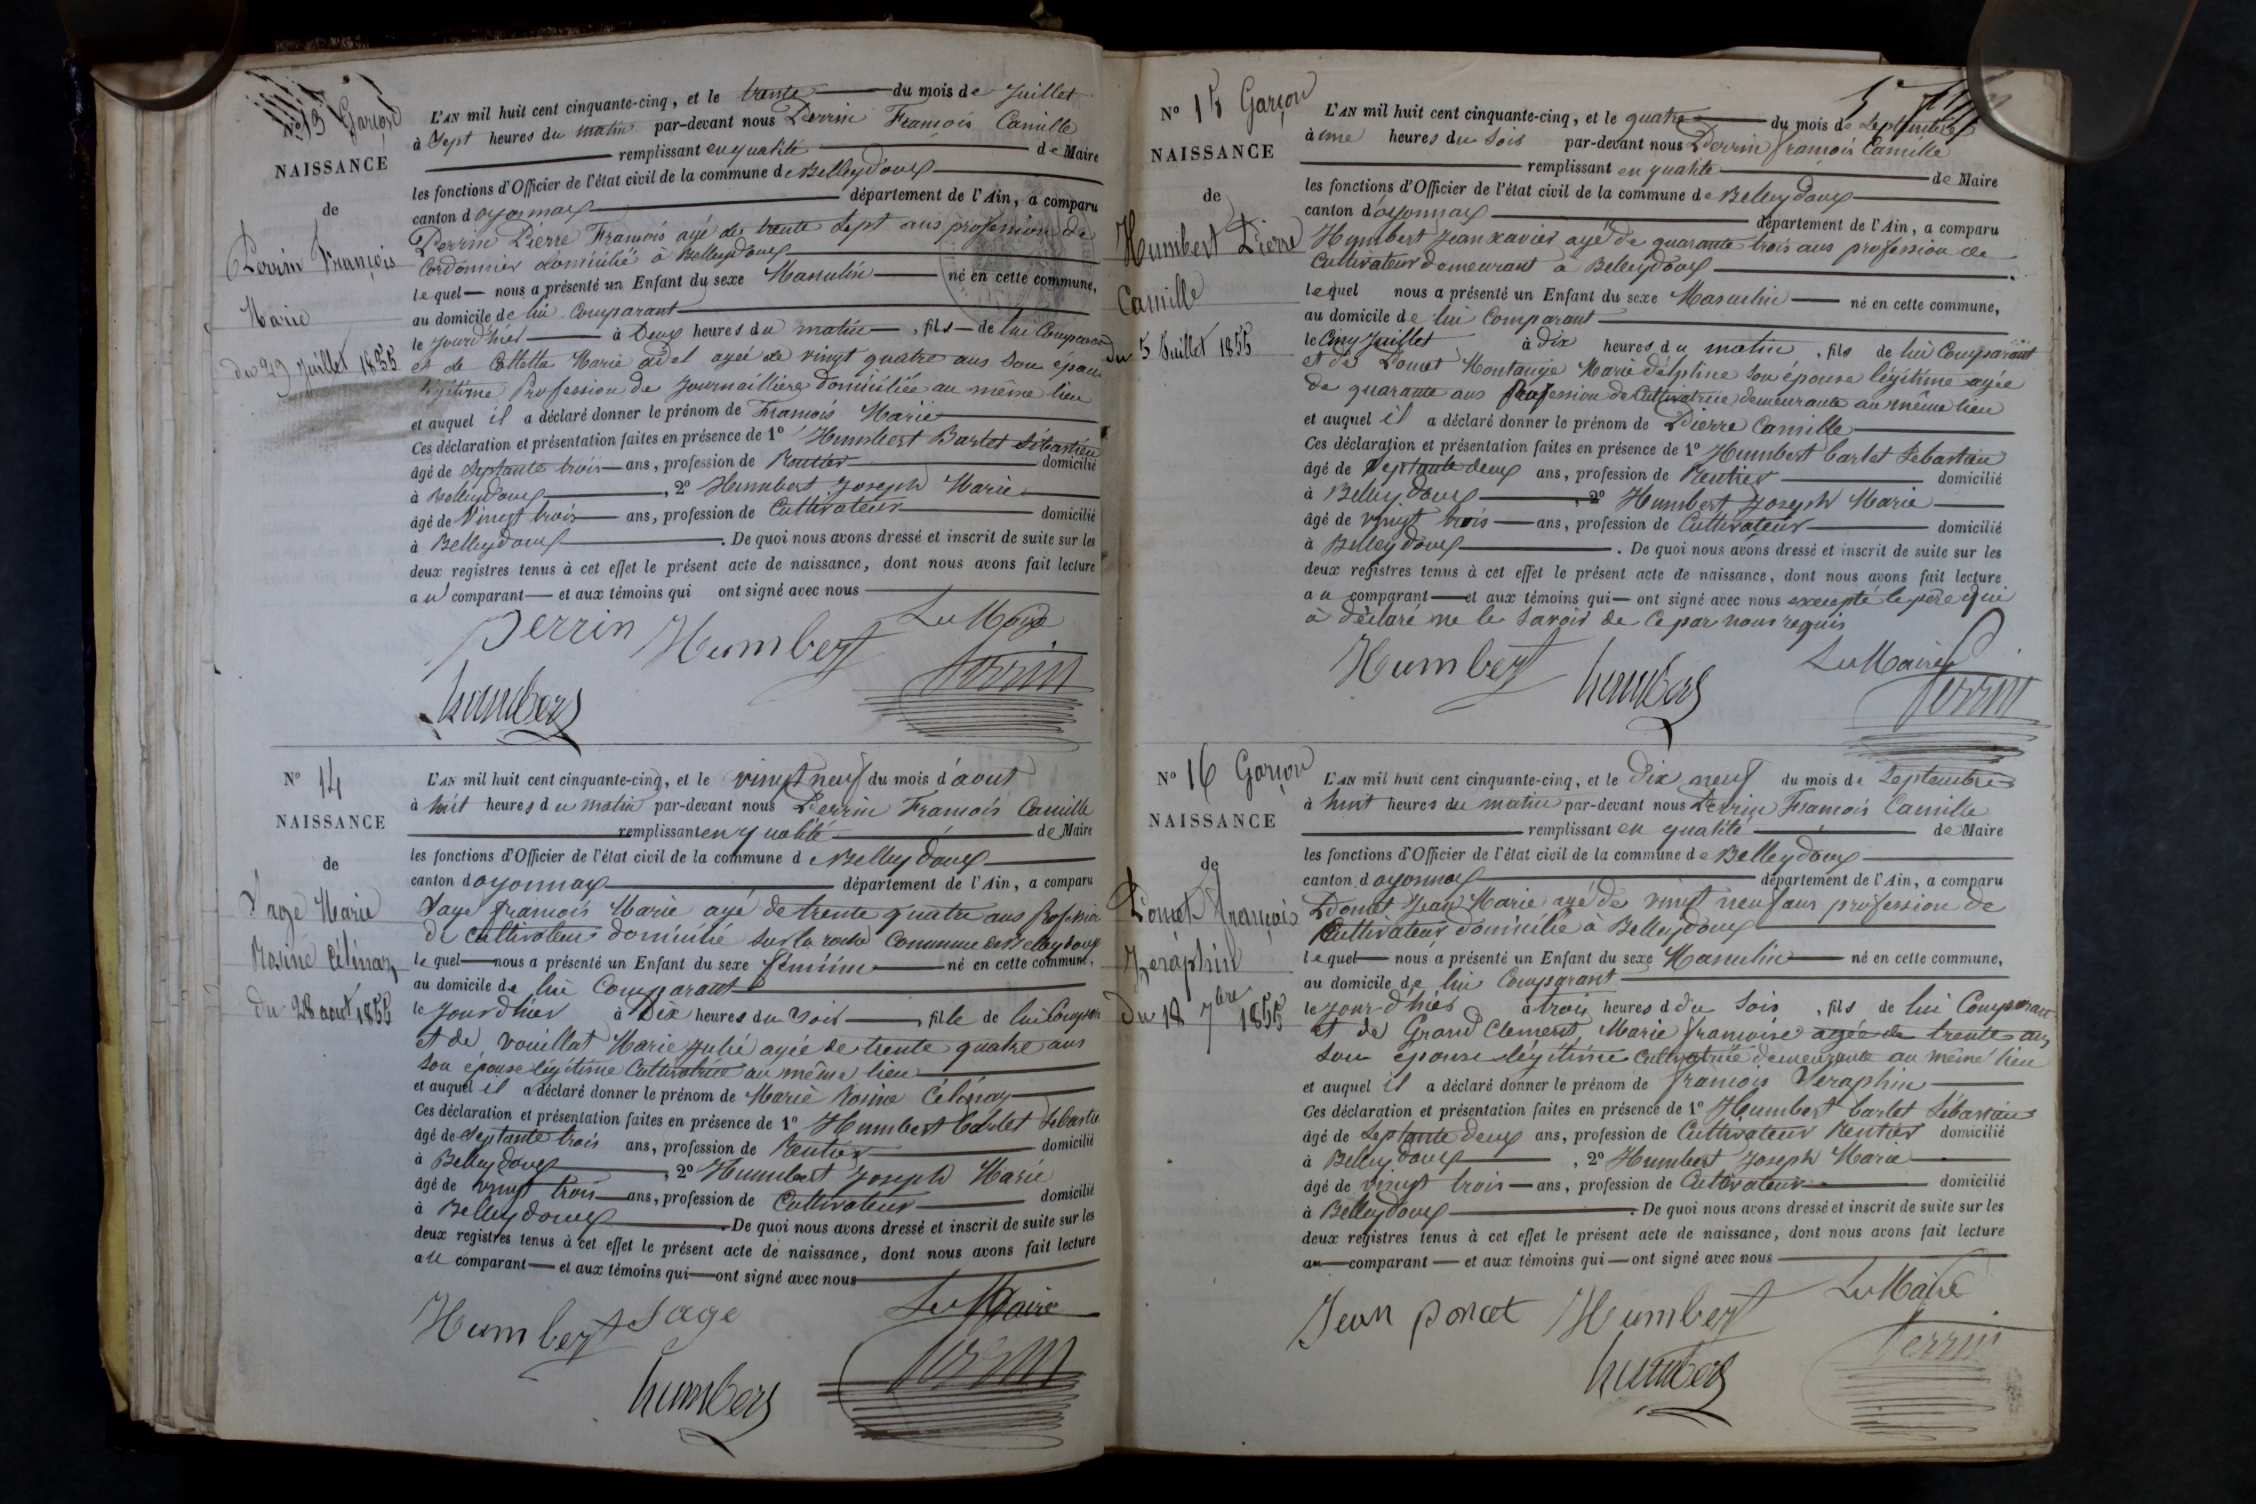 N° 13 Garçon
NAISSANCE
de
Perrin François
Marie
du 29 Juillet 1855
L'AN mil huit cent cinquante-cinq, et le trente du mois de Juillet
à Sept heures du matin par-devant nous Perrin François Camille
remplissant en qualité de Maire
les fonctions d'Officier de l'état civil de la commune de Belleydoux
canton d'oyonnax département de l'Ain, a comparu
Perrin Pierre François agé de trente Sept ans profession de
Cordonnier domicilié à Belleydoux
lequel nous a présenté un Enfant du sexe Masculin né en cette commune,
au domicile de lui Comparant
le jour d'hier à Deux heures du matin, fils de lui Comparant
et de Cottetta Marie adel agée de vingt quatre ans Son épouse
légitime Profession de Journaillière domiciliée au même lieu
et auquel il a déclaré donner le prénom de François Marie
Ces déclaration et présentation faites en présence de 1° Humbert Barlet Sébastien
âgé de Septante trois ans, profession de Rentier domicilié
à Belleydoux, 2° Humbert Joseph Marie
âgé de Vingt trois ans, profession de Cultivateur domicilié
à Belleydoux. De quoi nous avons dressé et inscrit de suite sur les
deux registres tenus à cet effet le présent acte de naissance, dont nous avons fait lecture
au comparant et aux témoins qui ont signé avec nous
Le Maire
Perrin Humbert
Perrin
humbert
N° 14
NAISSANCE
de
Sage Marie
Rosine Célinaz
du 28 août 1855
L'AN mil huit cent cinquante-cinq, et le vingt neuf du mois d'aout
à huit heures du matin par-devant nous Perrin François Camille
remplissant en qualité de Maire
les fonctions d'Officier de l'état civil de la commune de Belleydoux
canton d'oyonnax département de l'Ain, a comparu
Sage françois Marie agé de trente quatre ans Profession
de cultivateur domicilié Sur la roche Commune de Belleydoux
lequel nous a présenté un Enfant du sexe féminin né en cette commune,
au domicile de lui Comparant
le jour d'hier à Dix heures du Soir, fille de lui Comparant
et de vouillat Marie Julie agée de trente quatre ans
son épouse légitime Cultivatrice au même lieu
et auquel il a déclaré donner le prénom de Marie Rosine Célinaz
Ces déclaration et présentation faites en présence de 1° Humbert barlet Sebastien
âgé de Septante trois ans, profession de Rentier domicilié
à Belleydoux, 2° Humbert Joseph Marie
âgé de vingt trois ans, profession de Cultivateur domicilié
à Belleydoux. De quoi nous avons dressé et inscrit de suite sur les
deux registres tenus à cet effet le présent acte de naissance, dont nous avons fait lecture
au comparant et aux témoins qui ont signé avec nous
Le Maire
Humbert Sage
Perrin
humbert
N° 15 Garçon
NAISSANCE
de
Humbert Pierre
Camille
du 5 Juillet 1855
L'AN mil huit cent cinquante-cinq, et le quatre du mois de Septembre
à une heures du soir par-devant nous Perrin françois Camille
remplissant en qualité de Maire
les fonctions d'Officier de l'état civil de la commune de Belleydoux
canton d'oyonnax département de l'Ain, a comparu
Humbert Jean xavier agé de quarante trois ans profession de
Cultivateur demeurant à Belleydoux
lequel nous a présenté un Enfant du sexe Masculin né en cette commune,
au domicile de lui Comparant
le Cinq Juillet à dix heures du matin, fils de lui Comparant
et de Poncet Montange Marie délphine son épouse légitime agée
de quarante ans profession de Cultivatrice demeurante au même lieu
et auquel il a déclaré donner le prénom de Pierre Camille
Ces déclaration et présentation faites en présence de 1° Humbert barlet Sébastien
âgé de Septante deux ans, profession de Rentier domicilié
à Belleydoux, 2° Humbert Joseph Marie
âgé de vingt trois ans, profession de Cultivateur domicilié
à Belleydoux. De quoi nous avons dressé et inscrit de suite sur les
deux registres tenus à cet effet le présent acte de naissance, dont nous avons fait lecture
au comparant et aux témoins qui ont signé avec nous excepté le père qui
à déclaré ne le savoir de ce par nous requis
Le Maire
Humbert humbert
Perrin
N° 16 Garçon
NAISSANCE
de
Poncet françois
Séraphin
du 18 7bre 1855
L'AN mil huit cent cinquante-cinq, et le Dix neuf du mois de Septembre
à huit heures du matin par-devant nous Perrin François Camille
remplissant en qualité de Maire
les fonctions d'Officier de l'état civil de la commune de Belleydoux
canton d'oyonnax département de l'Ain, a comparu
Poncet Jean Marie agé de vingt neuf ans profession de
Cultivateur domicilié à Belleydoux
lequel nous a présenté un Enfant du sexe Masculin né en cette commune,
au domicile de lui Comparant
le jour d'hier à trois heures d du Soir, fils de lui Comparant
et de Grand Clement Marie françoise agée de trente ans
Son épouse légitime Cultivatrice demeurante au même lieu
et auquel il a déclaré donner le prénom de françois Séraphin
Ces déclaration et présentation faites en présence de 1° Humbert barlet Sébastien
âgé de Septante deux ans, profession de Cultivateur Rentier domicilié
à Belleydoux, 2° Humbert Joseph Marie
âgé de vingt trois ans, profession de Cultivateur domicilié
à Belleydoux. De quoi nous avons dressé et inscrit de suite sur les
deux registres tenus à cet effet le présent acte de naissance, dont nous avons fait lecture
au comparant et aux témoins qui ont signé avec nous
Le Maire
Jean poncet Humbert
Perrin
humbert